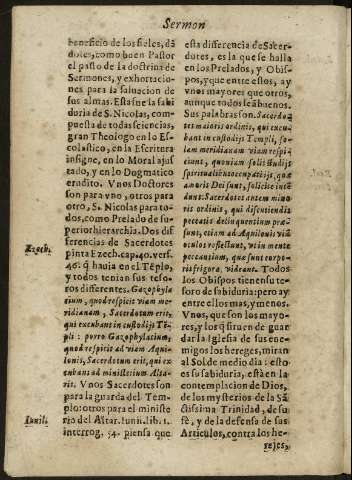 Sermon
beneficio de los fieles, dã
doles, como buen Pastor
el pasto de la doctrina de
Sermones, y exhortacio-
nes para la saluacion de
sus almas. Esta fue la sabi
duria de S. Nicolas, com-
puesta de todas ciencias,
gran Theologo en lo Es-
colastico, en la Escritura
insigne, en lo Moral ajus
tado, y en lo Dogmatico
erudito. Vnos Doctores
son para vno, otros para
otro, S. Nicolas para to-
dos, como Prelado de su-
perior hierarchia. Dos di-
ferencias de Sacerdotes
Ezech.
pinta Ezech. cap. 40. vers.
46. q̃ hauia en el Tẽplo,
y todos tenian sus teso-
ros diferentes. Gazophyla
cium, quod respicit viam me-
ridianam, Sacerdotum erit,
qui excubant in custodijs Tẽ-
pli: porrò Gazophylacium,
quod respicit ad viam Aqui-
lonis, Sacerdotum erit, qui ex
cubant ad ministerium Alta-
ris. Vnos Sacerdotes son
para la guarda del Tem-
plo: otros para el ministe
Iunil.
rio del Altar. Iunil. lib. 1.
interrog. 54. piensa que
esta differencia de Sacer-
dotes, es la que se halla
en los Prelados, y Obis-
pos, y que entre estos, ay
vnos mayores que otros,
aunque todos seã buenos.
Sus palabras son. Sacerdo-
tes maioris ordinis, qui excu-
bant in custodijs Templi, so-
lam meridianam viam respi-
ciunt, quoniam soli studijs
spiritualibus occupati sunt, quæ
amoris Dei sunt, solicitè inten
dunt: Sacerdotes autem mino-
ris ordinis, qui discutiendis
peccatis delinquentium præ-
sunt, etiam ad Aquilonis viã
oculos reflectunt, vt in mente
peccantium, quæ sunt corpo-
ris frigora, videant. Todos
los Obispos tienen su te-
soro de sabiduria: pero ay
entre ellos mas, y menos.
Vnos, que son los mayo-
res, y los q̃ siruen de guar
dar la Iglesia de sus ene-
migos los hereges, miran
al Sol de medio dia: esto
es su sabiduria, està en la
contemplacion de Dios,
de los mysterios de la Sã
ctissima Trinidad, de su
fè, y de la defensa de sus
Articulos, contra los he-
reges,